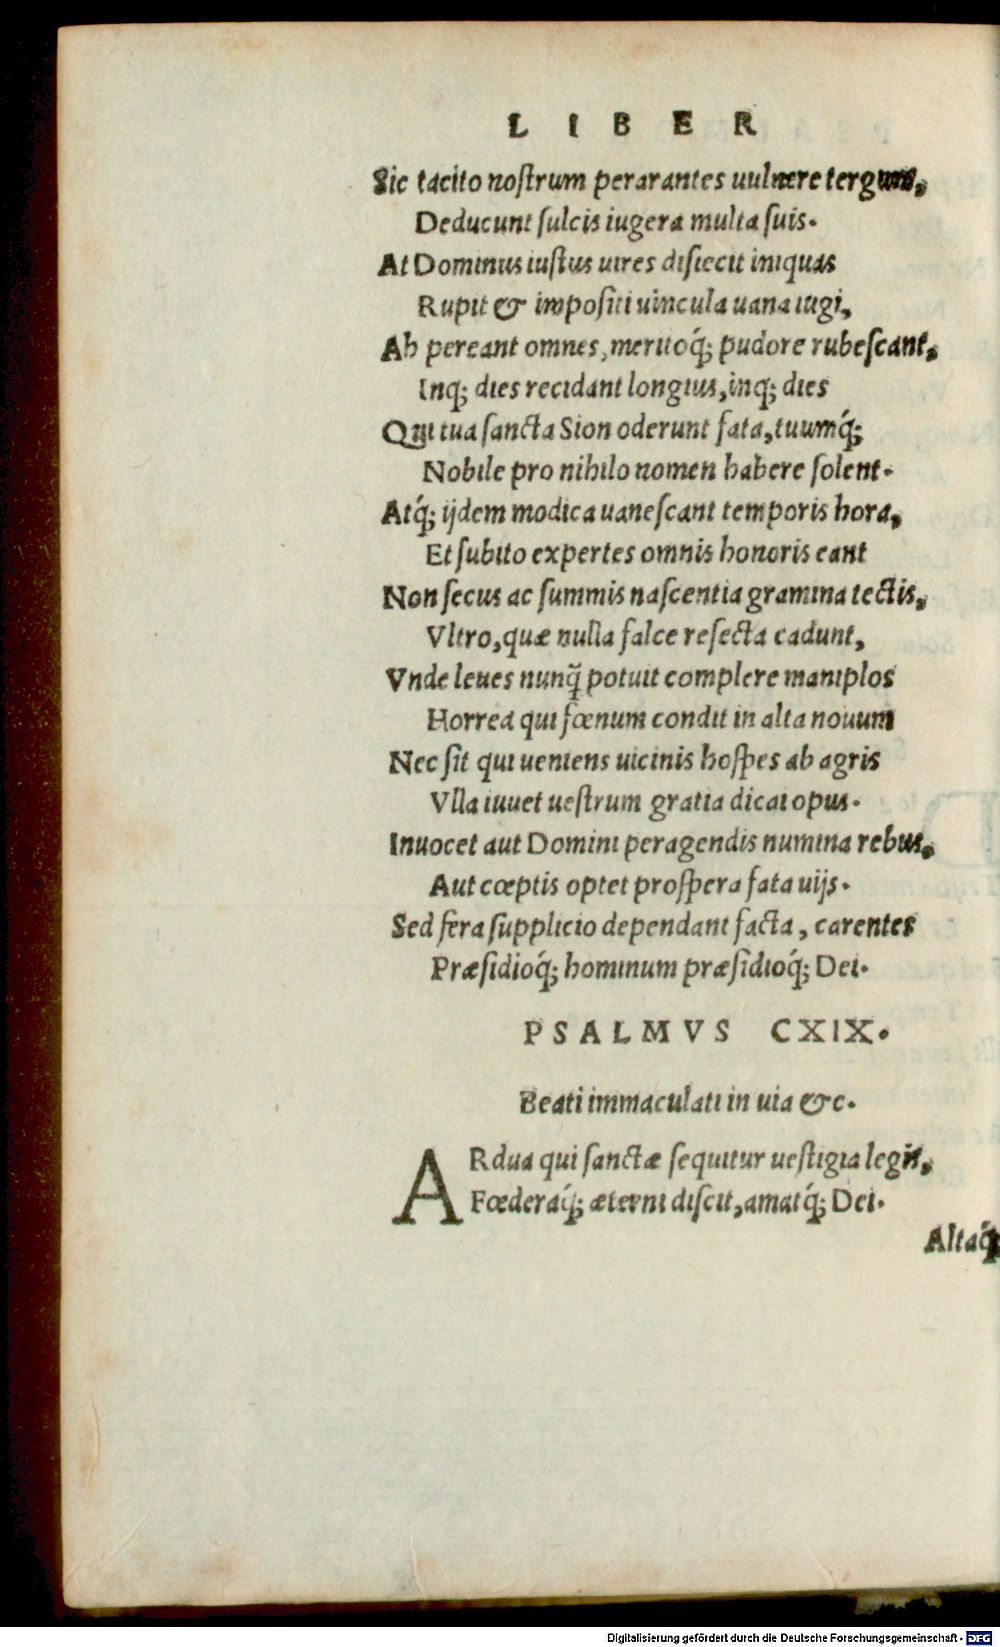 LIBER
Sic tacito nostrum perarantes uulnere tergum,
Deducunt sulcis iugera multa suis.
At Dominus iustus uires disiecit iniquas
Rupit & impositi uincula uana iugi,
Ah pereant omnes, meritoq́; pudore rubescant,
Inq; dies recidant longius, inq; dies
Qui tua sancta Sion oderunt fata, tuumq́;
Nobile pro nihilo nomen habere solent.
Atq́; ijdem modica uanescant temporis hora,
Et subito expertes omnis honoris eant
Non secus ac summis nascentia gramina tectis,
Vltro, quæ nulla falce resecta cadunt,
Vnde leues nunq̃ potuit complere maniplos
Horrea qui fœnum condit in alta nouum
Nec sit qui ueniens uicinis hospes ab agris
Vlla iuuet uestrum gratia dicat opus.
Inuocet aut Domini peragendis numina rebus,
Aut cœptis optet prospera fata uijs.
Sed fera supplicio dependant facta, carentes
Præsidioq́; hominum præsidioq́; Dei.
PSALMVS CXIX.
Beati immaculati in uia &c.
ARdua qui sanctæ sequitur uestigia legis,
Fœderaq́; æterni discit, amatq́; Dei.
Altaq́;
Digitalisierung gefördert durch die Deutsche Forschungsgemeinschaft - DFG